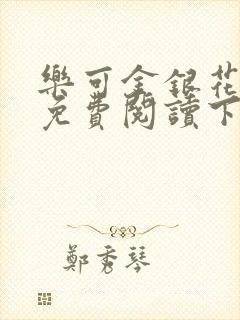 樂可金銀花
免費閱讀下
鄭秀琴